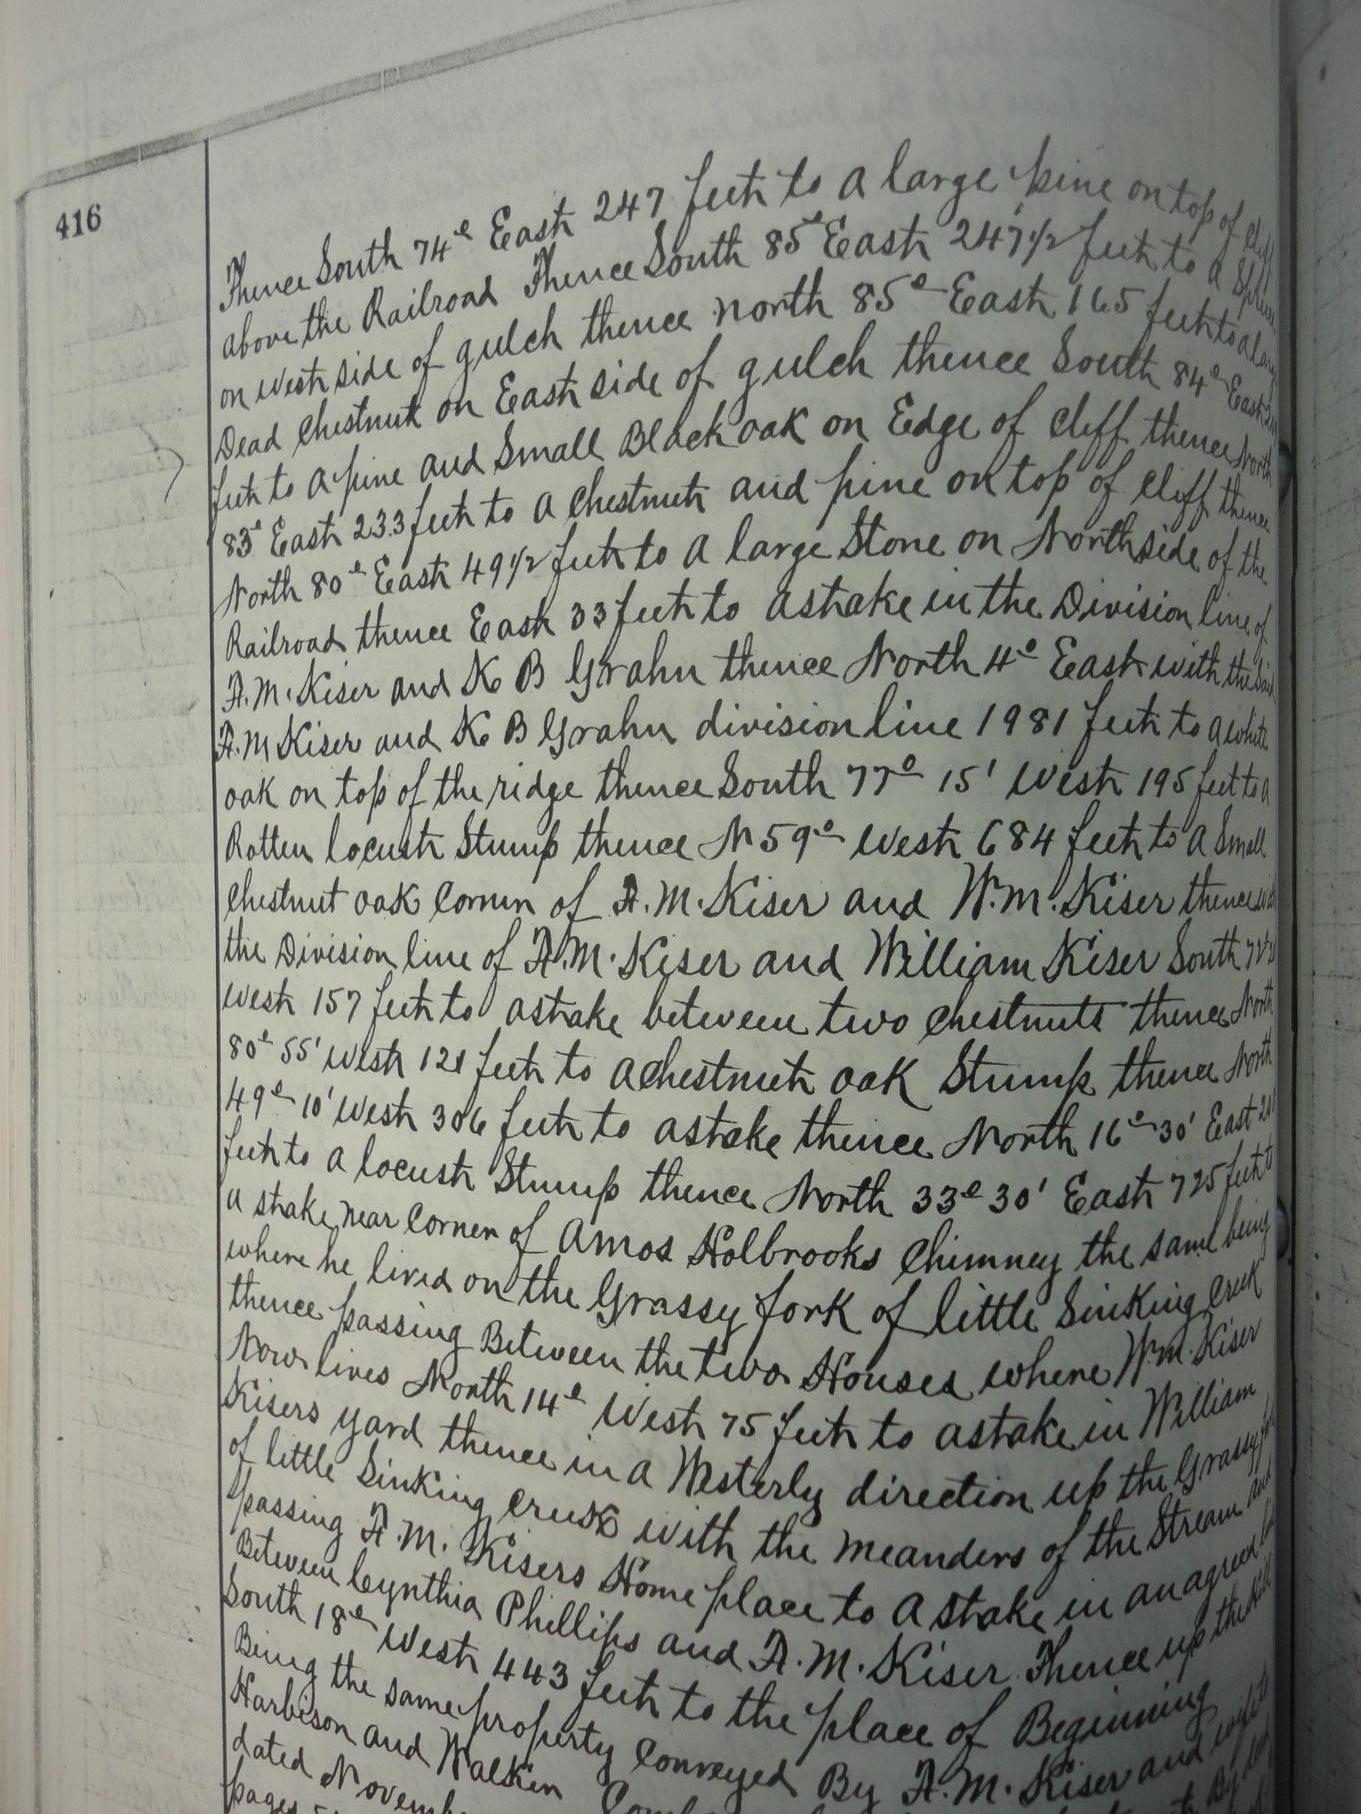 416
Thence South 74° East 247 feet to a large pine on top of Cliff
above the Railroad Thence South 85° East 247 1/2 feet to a
on West side of gulch thence north 85° East 165 feet to a large
Dead Chestnut on East side of gulch thence South 84° East
feet to a pine and Small Black oak on Edge of Cliff thence North
83° East 233 feet to a Chestnut and pine on top of Cliff thence
North 80° East 49 1/2 feet to a large Stone on North side of the
Railroad thence East 33 feet to a stake in the Division line of
A.M. Kiser and K B Grahn thence North 4° East with the said
A.M Kiser and K B Grahn division line 1981 feet to a white
oak on top of the ridge thence South 77° 15' West 195 feet to a
Rotten locust Stump thence N 59° West 684 feet to a Small
Chestnut oak Corner of A.M. Kiser and W.M. Kiser thence with
the Division line of A.M. Kiser and William Kiser South
West 157 feet to a stake between two chestnuts thence North
80° 55' West 121 feet to a chestnut oak Stump thence North
49° 10' West 306 feet to a stake thence North 16° 30' East
feet to a locust Stump thence North 33° 30' East 725 feet to
a stake near Corner of Amos Holbrooks Chimney the same being
where he lived on the Grassy fork of little Sinking Creek
thence passing Between the two Houses where Wm. Kiser
Now lives North 14° West 75 feet to a stake in William
Kisers yard thence in a Westerly direction up the Grassy
of little Sinking Creek with the meanders of the Stream and
passing A.M. Kisers Home place to a stake in an agreed
Between Cynthia Phillips and A.M. Kiser Thence up the
South 18° West 443 feet to the place of Beginning
Being the same property Conveyed By A.M. Kiser and wife to
Harbison and Walker By
dated
pages